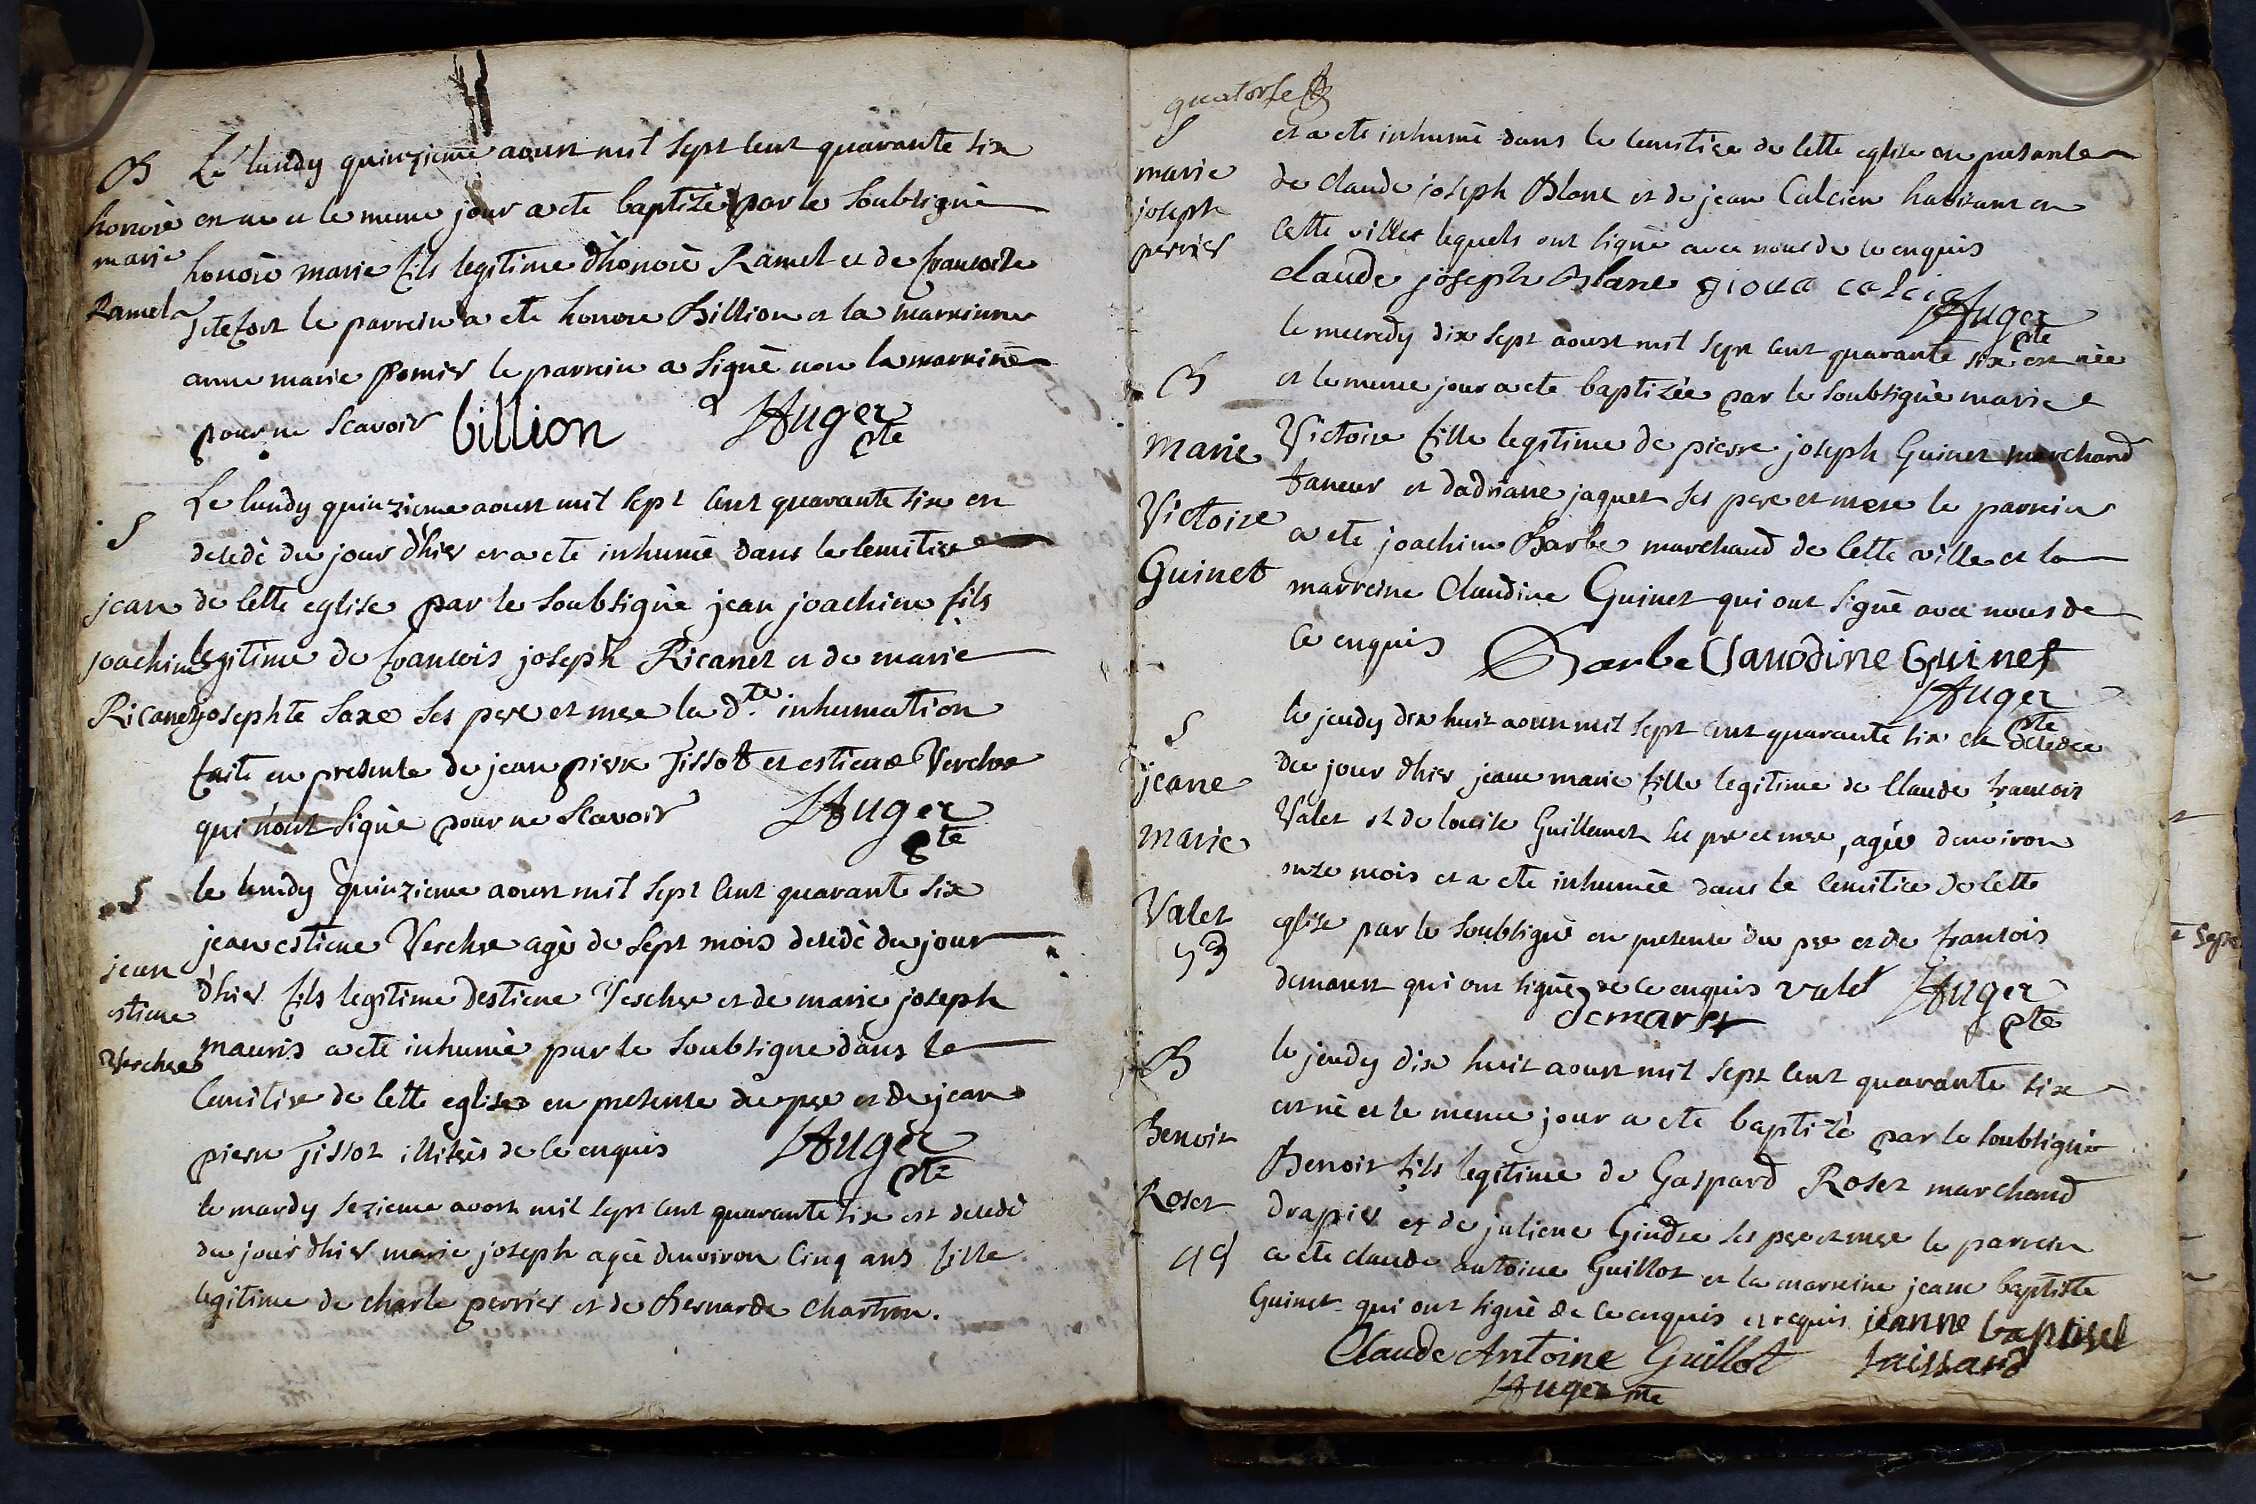 B
honoré
marie
Ramel
Le lundy quinzieme aoust mil sept cent quarante six
est né et le meme jour a eté baptizé par le soubsigné
honoré marie fils legitime d'honoré Ramel et de francoise
jitefort le parrein a eté honore Billion et la marreinne
anne marie pomier le parrein a signé non la marreine
pour ne scavoir billion Auger
pte
S
jean
joachim
Ricanet
Le lundy quinzieme aoust mil sept cent quarante six est
decedé du jour d'hier et a eté inhumé dans le cemitiere
de cette eglise par le soubsigné jean joachim fils
legitime de francois joseph Ricanet et de marie
josephte Saxe ses pere et mere la d.te inhumation
faite en presence de jean pierre Tissot et estiene Verchere
qui n'ont signé pour ne scavoir Auger
pte
S
jean
estiene
Verchere
le lundy quinzieme aoust mil sept cent quarante six
jean estiene Verchere agé de sept mois decedé du jour
d'hier fils legitime d'estiene Verchere et de marie joseph
mauris a eté inhumé par le soubsigné dans le
cemitiere de cette eglise en presence du pere et de jean
pierre Tissot illiterés de ce enquis Auger
pte
le mardy sezieme aoust mil sept cent quarante six est decedé
du jour d'hier marie joseph agée denviron cinq ans fille
legitime de charle perrier et de Bernarde chartron.
quatorse
S
marie
joseph
perrier
et a eté inhumé dans le cemitiere de cette eglise en presence
de claude joseph Blanc et de jean Calcien habitant en
cette ville lequels ont signé avec nous de ce enquis
claude joseph blanc giova calcia
Auger
pte
B
Marie
Victoire
Guinet
le mecredy dix sept aoust mil sept cent quarante six est née
et le meme jour a eté baptizée par le soubsigné marie
Victoire fille legitime de pierre joseph Guinet marchand
taneur et dadriane jaquet ses pere et mere le parrein
a eté joachim Barbe marchand de cette ville et la
marreine Claudine Guinet qui ont signé avec nous de
ce enquis Barbe Clauodine Guinet
Auger
pte
S
jeane
marie
Valet
53
le jeudy dix huit aoust mil sept cent quarante six est decedée
du jour d'hier jeane marie fille legitime de Claude francois
Valet et de louise Guillemet ses pere et mere, agée denviron
onze mois et a eté inhumée dans le cemitiere de cette
eglise par le soubsigné en presence du pere et de francois
demarest qui ont signé de ce enquis valet Auger
demarest pte
B
Benoit
Roset
99
le jeudy dix huit aoust mil sept cent quarante six
est né et le meme jour a eté baptizé par le soubsigné
Benoit fils legitime de Gaspard Roset marchand
drapier et de juliene Gindre ses pere et mere le parrein
a eté claude antoine Guillot et la marreine jeane baptiste
Guinet qui ont signé de ce enquis et requis jeanne baptiset
Claude Antoine Guillot
Auger pte